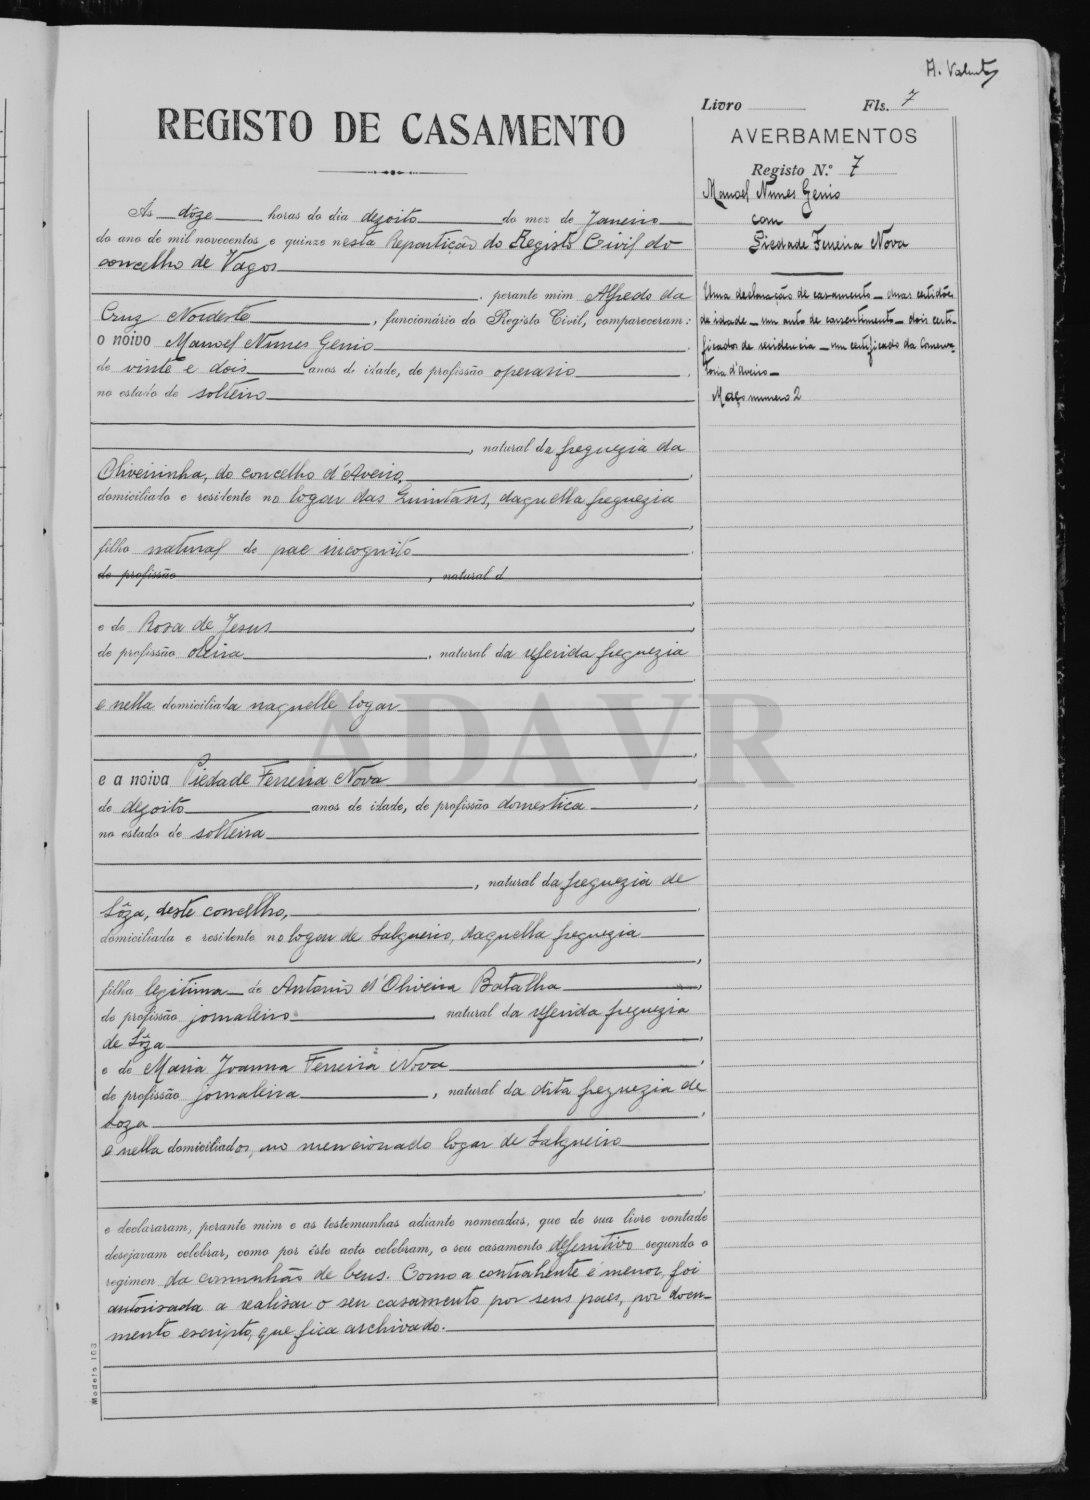 Livro Fls. 7
REGISTO DE CASAMENTO
AVERBAMENTOS
Registo N.º 7
Manoel Nunes Genio
com
Piedade Ferreira Nova
Uma declaração de casamento _ duas certidões
de idade _ um auto de consentimento _ dois certi-
ficados de residencia _ um certificado da Conserva-
toria d'Aveiro _
Maço numero 2
Ás dôze horas do dia dezoito do mez de Janeiro
do ano de mil novecentos e quinze nesta Repartição do Registo Civil do
concelho de Vagos
, perante mim Alfredo da
Cruz Nordeste, funcionário do Registo Civil, compareceram:
o noivo Manoel Nunes Genio
de vinte e dois anos de idade, de profissão operario,
no estado de solteiro
, natural da freguezia da
Oliveirinha, do concelho d'Aveiro,
domiciliado e residente no logar das Quintans, daquella freguezia
,
filho natural de pae incognito.
de profissão, natural d
e de Rosa de Jesus
de profissão oleira, natural da referida freguezia
e nella domiciliada naquelle logar
e a noiva Piedade Ferreira Nova
de dezoito anos de idade, de profissão domestica,
no estado de solteira
, natural da freguezia de
Sôza, deste concelho,
domiciliada e residente no logar de Salgueiro, daquella freguezia
,
filha legitima de Antonio d'Oliveira Batalha,
de profissão jornaleiro, natural da referida freguezia
de Sôza,
e de Maria Joanna Ferreira Nova,
de profissão jornaleira, natural da dita freguezia de
Soza,
e nella domiciliados, no mencionado logar de Salgueiro
e declararam, perante mim e as testemunhas adiante nomeadas, que de sua livre vontade
desejavam celebrar, como por êste acto celebram, o seu casamento definitivo segundo o
regimen da comunhão de bens. Como a contrahente é menor, foi
autorisada a realisar o seu casamento por seus paes, por docu-
mento escripto, que fica archivado.
Modelo 103
ADAVR